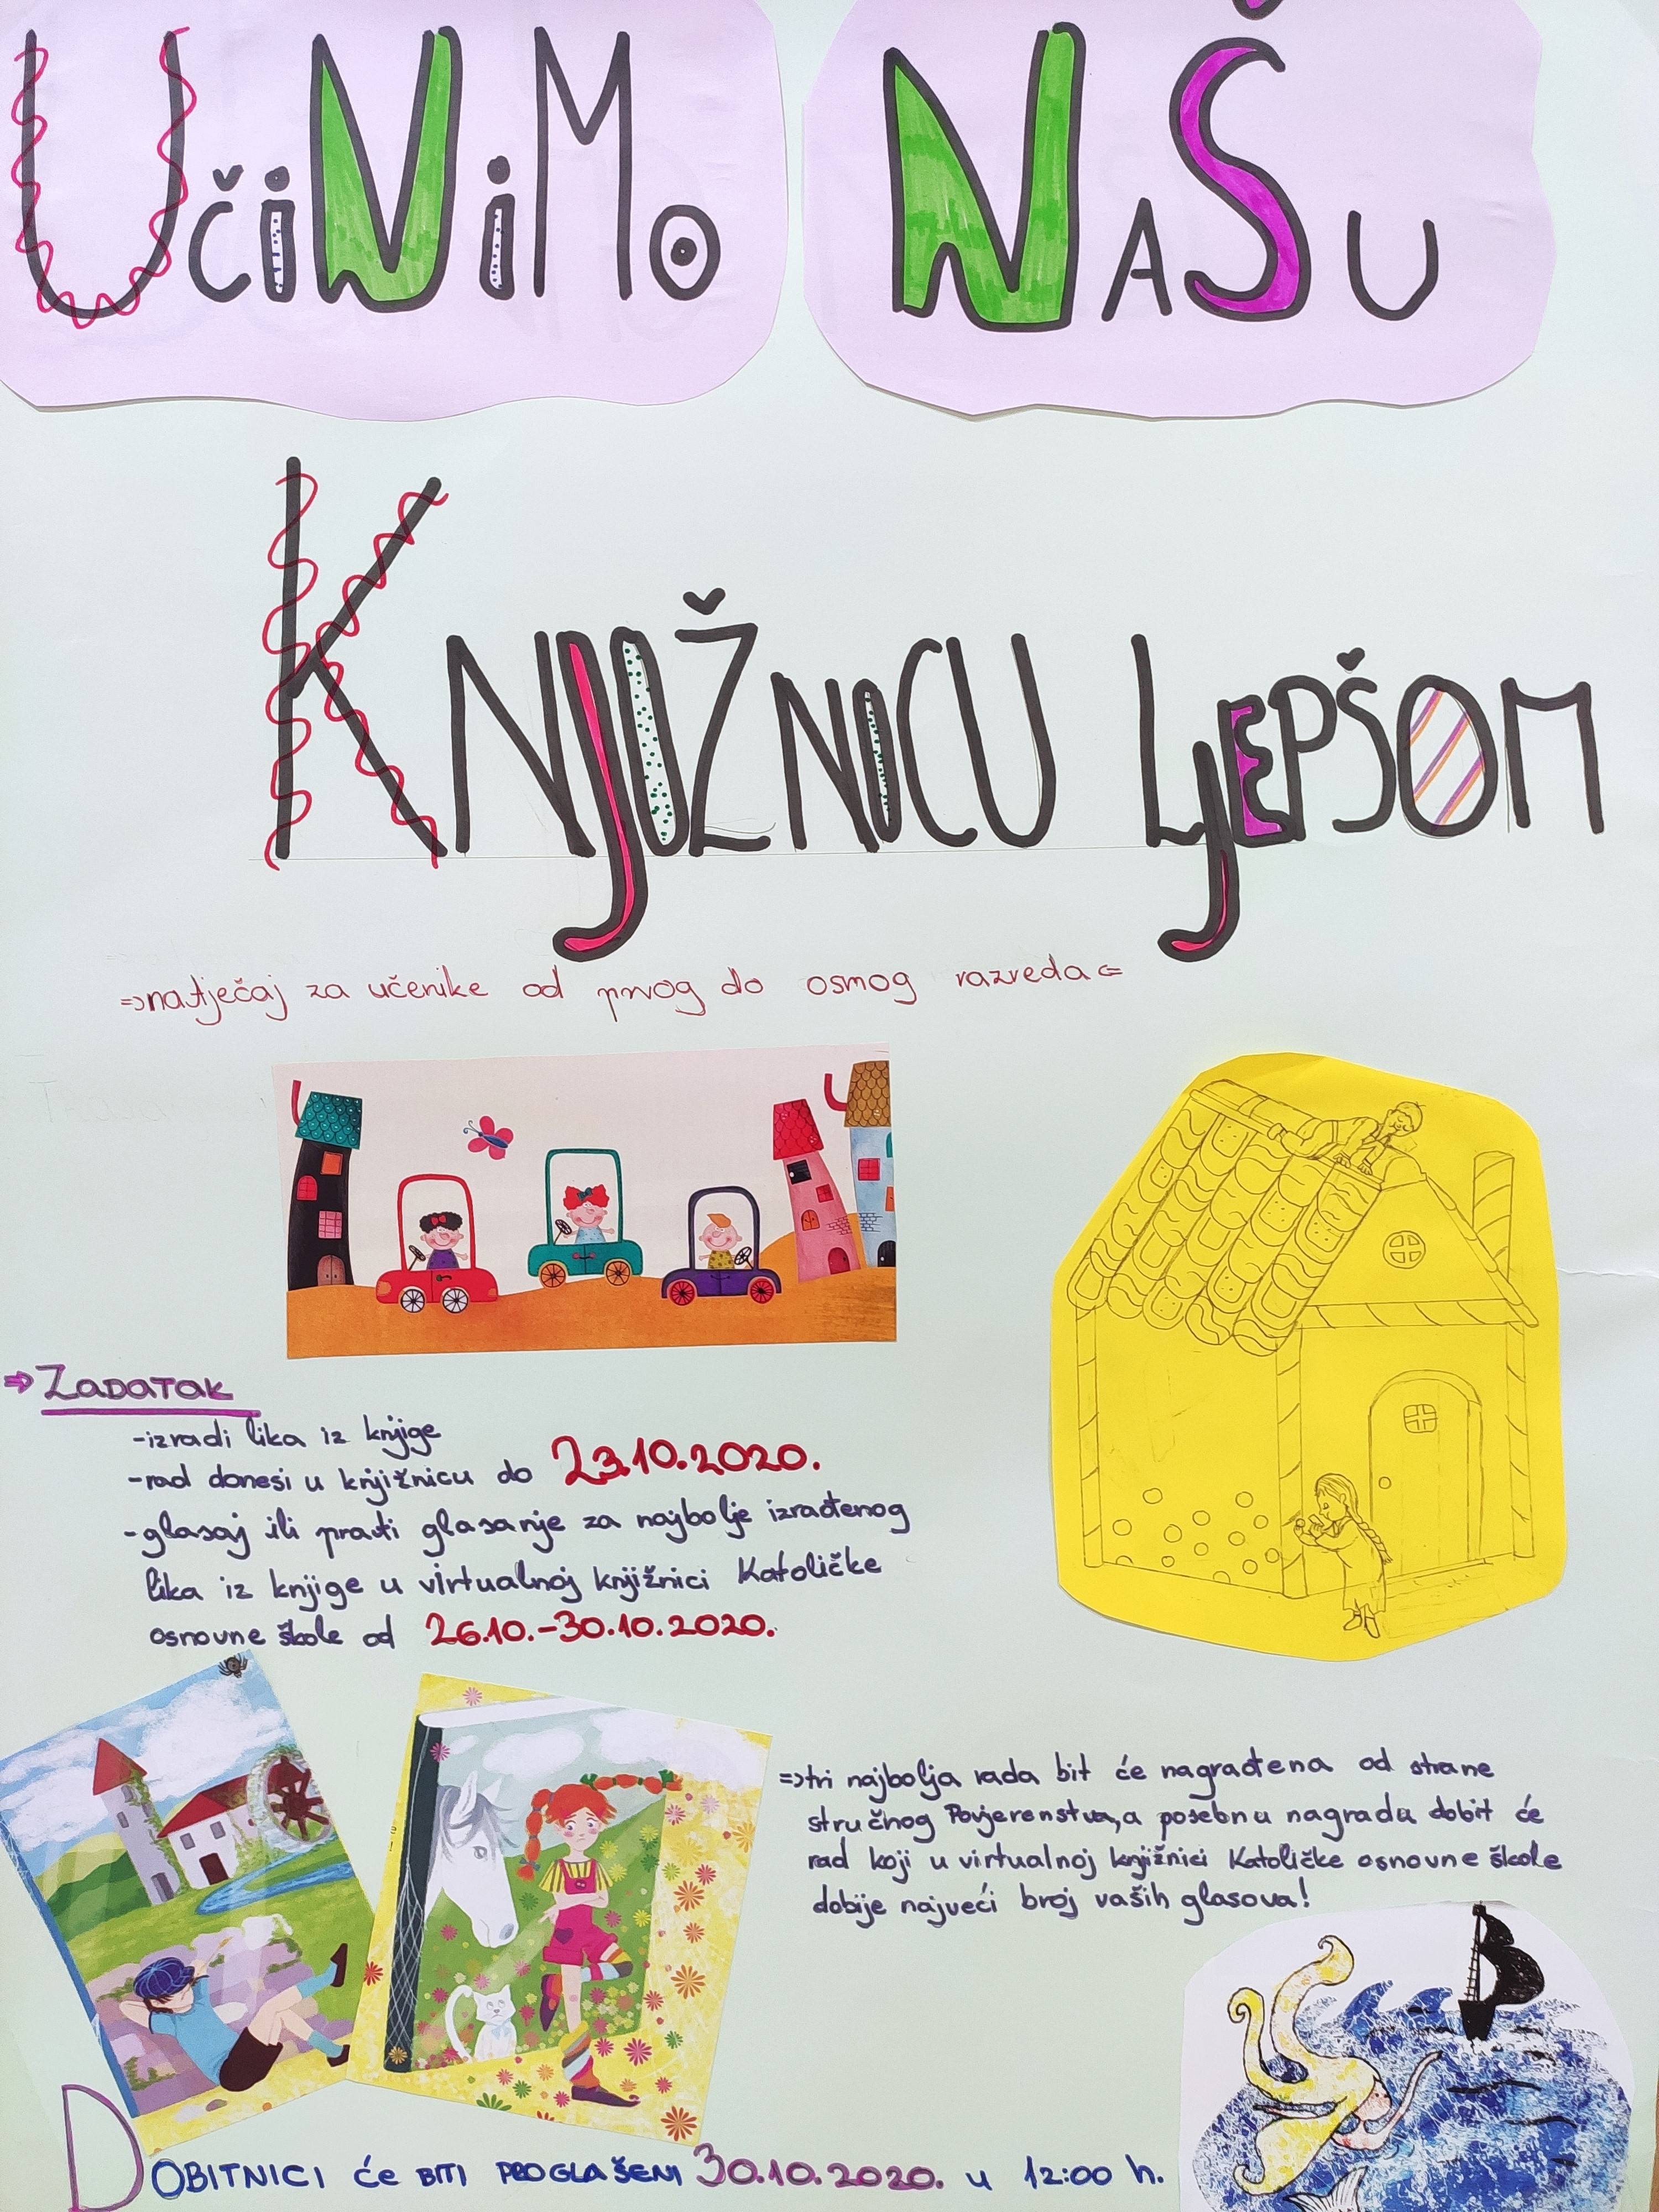 UčiNiMo NAŠU
KNJIŽNICU LJEPŠOM
⇒natječaj za učenike od prvog do osmog razreda⇐
⇒ ZADATAK
-izradi lika iz knjige
-rad donesi u knjižnicu do 23.10.2020.
-glasaj ili prati glasanje za najbolje izrađenog
lika iz knjige u virtualnoj knjižnici Katoličke
osnovne škole od 26.10.-30.10.2020.
⇒tri najbolja rada bit će nagrađena od strane
stručnog Povjerenstva, a posebnu nagradu dobit će
rad koji u virtualnoj knjižnici Katoličke osnovne škole
dobije najveći broj vaših glasova!
DOBITNICI će BITI PROGLAŠENI 30.10.2020. u 12:00 h.